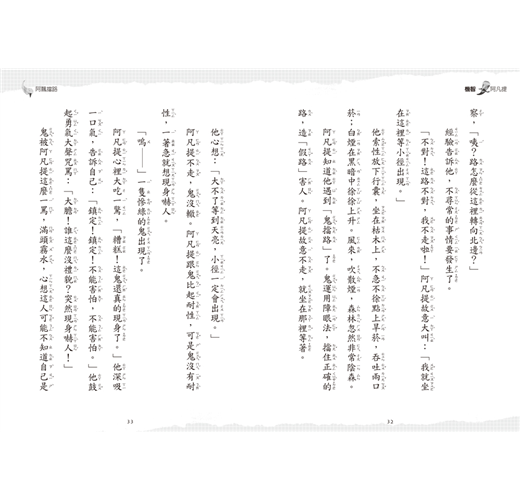 機智阿凡提
察，「咦？路怎麼從這裡轉向北邊？」
經驗告訴他，不尋常的事情要發生了。
「不對！這路不對，我不走啦！」阿凡提故意大叫：「我就坐
在這裡等小徑出現。」
他索性放下行囊，坐在枯木上，不急不徐點上旱菸，吞吐兩口
菸；白煙在黑暗中徐徐上升。風來，吹散煙，森林忽然非常陰森。
阿凡提知道他遇到「鬼擋路」了。鬼運用障眼法，擋住正確的
路，造「假路」害人。阿凡提故意不走，就坐在那裡等著。
32
阿飄擋路
他心想：「大不了等到天亮，小徑一定會出現。」
阿凡提不走，鬼沒轍。阿凡提跟鬼比起耐性，可是鬼沒有耐
性，一著急就想現身嚇人。
「嗚——」一隻慘綠的鬼出現了。
阿凡提心裡大吃一驚，「糟糕！這鬼還真的現身了。」他深吸
一口氣，告訴自己：「鎮定！鎮定！不能害怕，不能害怕。」他鼓
起勇氣大聲咒罵：「大膽！誰這麼沒禮貌？突然現身嚇人！」
鬼被阿凡提這麼一罵，滿頭霧水，心想這人可能不知道自己是
33